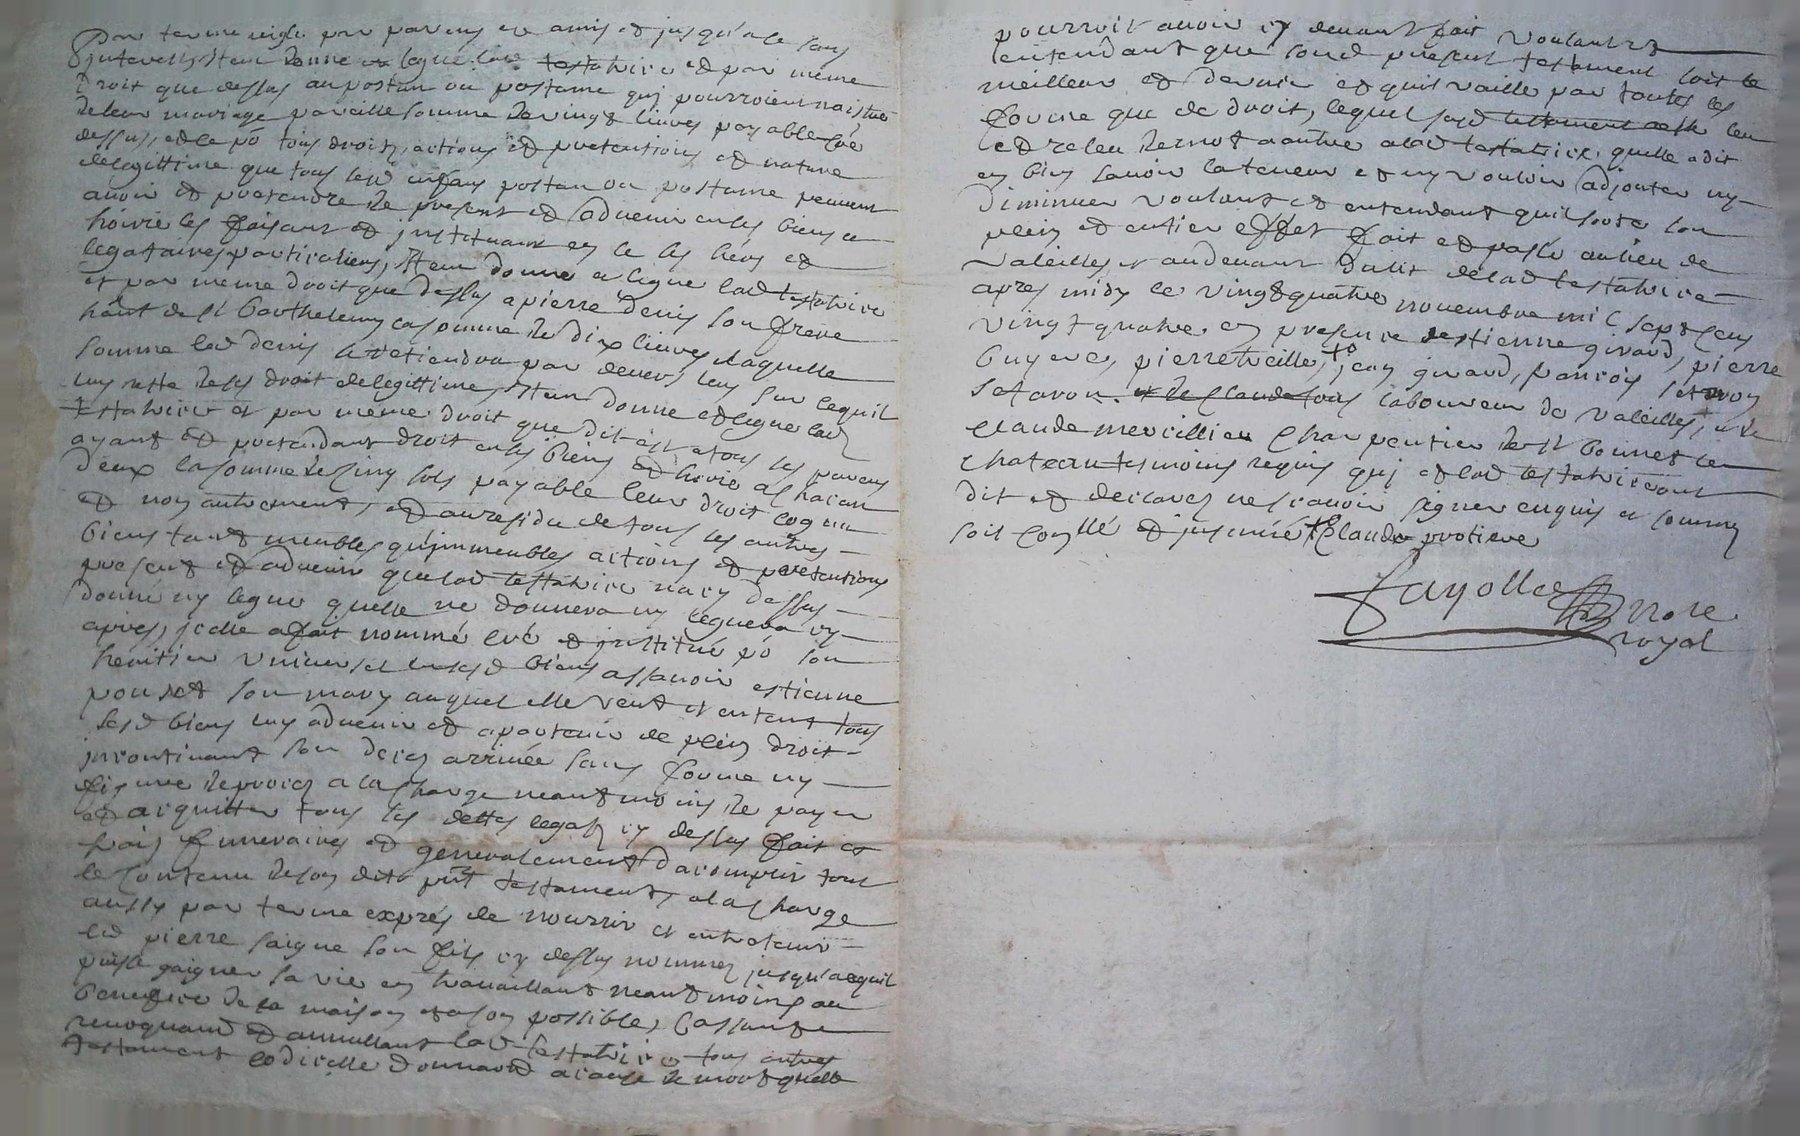 par terme reiglé par parens et amis et jusqu'a ce sans
jnterest, Item donne et legue lad testatrice et par meme
droit que dessus au postum ou postume quj pourroient naistre
de leur mariage pareille somme de vingt livres payable cõe
dessus, et ce põ tous droitz, actions et pretentions et nature
de legittime que tous sesd enfans postum ou postume peuvent
avoir et pretendre de present et advenir en ses biens et
hoirie les faisant et jnstituant en ce ses heirs et
legataires particuliers, Item donne et legue lad testatrice
et par meme droit que dessus a pierre denis son frere
hant de st Barthelemy la somme de dix livres laquelle
somme led denis retiendra par devers luy sur ce quil
luy reste de ses droit de legittime, Item donne et legue lad
testatrice et par meme droit que dit est a tous ses parens
ayant et pretendant droit en ses biens et hoirie a chacun
deux la somme de cinq sols payable leur droit cognu
et non autrement, et au residu de tous ses autres
biens tant meubles qujmmeubles actions et pretentions
present et advenir que lad testatrice na cy dessus
donné ny legué quelle ne donnera ny leguera cy
apres, jcelle a fait nommé creé et jnstitué põ son
heritier universel en sesd biens assavoir estienne
pouret son mary auquel elle veut et entent tous
sesd biens luy advenir et apartenir de plein droit
jncontinant son deces arrivée sans forme ny
figure de proces a la charge neantmoins de payer
et acquitter tous ses dettes legatz cy dessus fait et
frais funeraires et generalement dacomplir tout
le contenu de son dit pñt testament, a la charge
aussy par terme exprés de nourrir et entretenir
led pierre saigne son fils cy dessus nommez jusqu'a ce quil
puisse gaigner sa vie en travaillant neantmoins au
benefice de la maison et a son possible, Cassant
revoquant et annullant lad testatrice tous autres
testament codicille donnaõn a cause de mort quelle
pourroit avoir cy devant fait voulant et
entendant que sond present testament soit le
meilleur et dernier et quil vaille par toutes les
forme que de droit, lequel susd testament a esté leu
et releu de mot a autre a lad testatrice, quelle a dit
en bien savoir la teneur et ny vouloir adjouter ny
diminuer voulant et entendant quil sorte son
plein et entier effet fait et passé au lieu de
valeilles et au devant du lit de lad testatrice
apres midy ce vingt quatre novembre mil sept cens
vingt quatre en presence destienne girard, pierre
buyere, pierre treille, jean girard, françois setavon
setavon et de claude tous laboureur de valeilles, et de
claude mereillier charpentier de st bonnet les
chateau tesmoins requis quj et lad testatrice ont
dit et declarez ne scavoir signer enquis et sommez
soit conllé et jnsinué claude protiere
fayolle nore
royal